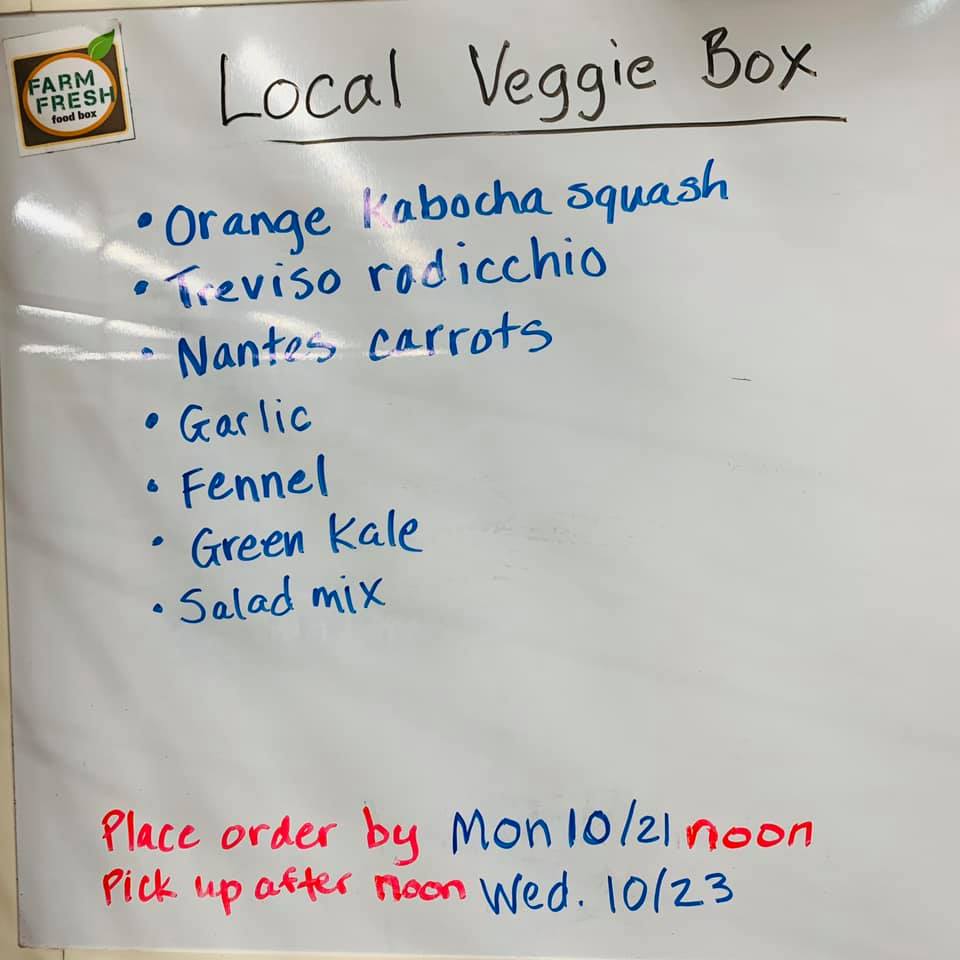 FARM
FRESH
food box
Local Veggie Box
• Orange Kabocha squash
• Treviso radicchio
• Nantes carrots
• Garlic
• Fennel
• Green Kale
• Salad mix
Place order by Mon 10/21 noon
Pick up after noon Wed. 10/23